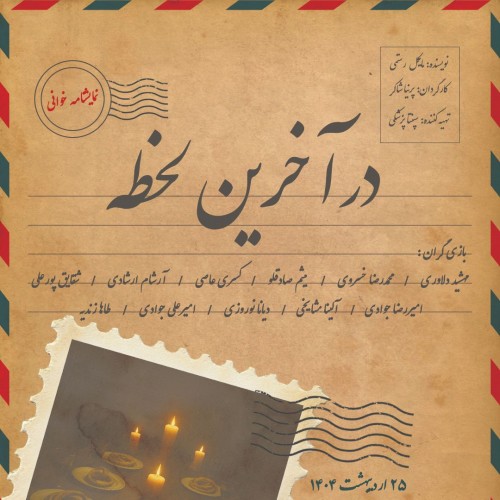 نمایشنامه خوانی
نویسنده: مایکل رستمی
کارگردان: پرنیا شاکر
تهیه کننده: سپنتا پزشکی
در آخرین لحظه
بازی گران:
مهشید دلاوری / محمدرضا خسروی / میثم صادقلو / کسری عاصی / آرشام ارشادی / شقایق پورعلی
امیررضا جوادی / آلینا مشایخی / دیانا نوروزی / امیرعلی جوادی / طاها زندیه
۲۵ اردیبهشت ۱۴۰۴